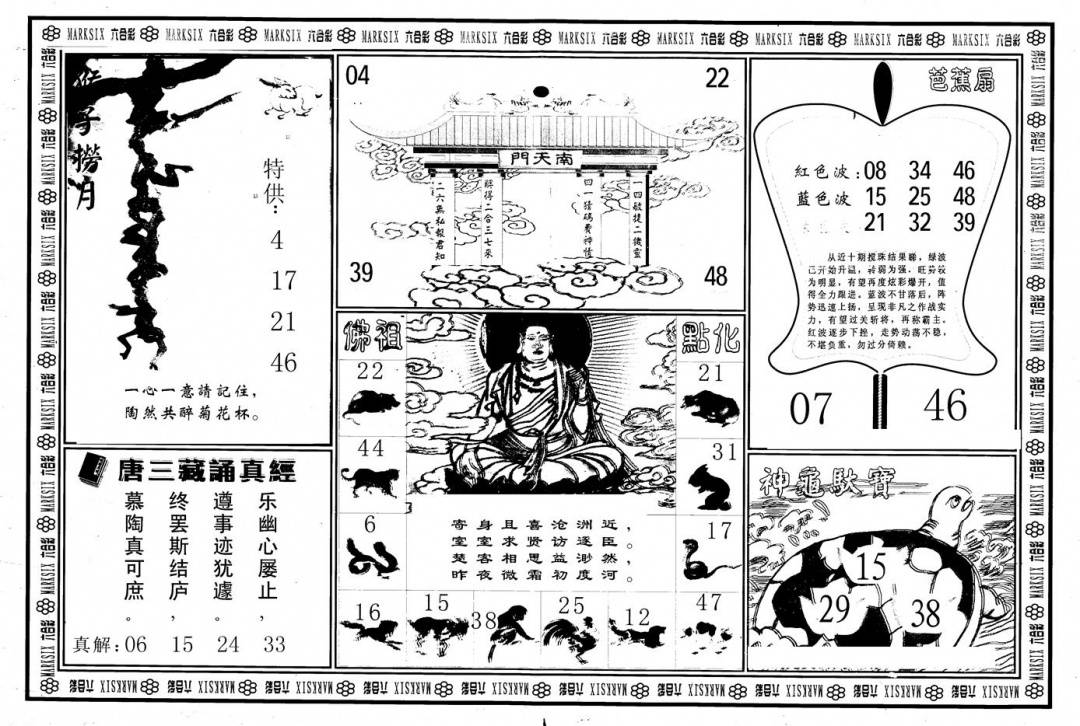 MARKSIX 六合彩 MARKSIX 六合彩 MARKSIX 六合彩 MARKSIX 六合彩 MARKSIX 六合彩 MARKSIX 六合彩 MARKSIX 六合彩 MARKSIX 六合彩 MARKSIX 六合彩 MARKSIX 六合彩
猴子撈月
特供:
4
17
21
46
一心一意請記住，
陶然共醉菊花杯。
04
22
南天門
一四敏捷二機靈
曰一猜碼費神情
師得二合三七來
二六無私報君知
39
48
芭蕉扇
紅色波:08 34 46
藍色波 15 25 48
21 32 39
从近十期搅珠结果睇，绿波
已开始升温，转弱为强，旺势较
为明显，有望再度炫彩爆开，值
得全力跟进。蓝波不甘落后，阵
势迅速上扬，呈现非凡之作战实
力，有望过关斩将，再称霸主。
红波逐步下挫，走势动荡不稳，
不堪负重，勿过分倚赖。
07
46
佛祖
點化
22
21
44
31
6
17
寄身且喜沧洲近，
室室求贤访逐臣。
楚客相思益渺然
昨夜微霜初度河。
16
15
38
25
12
47
唐三藏誦真經
乐幽心屡止，
遵事迹犹遽。
终罢斯结庐，
慕陶真可庶。
真解:06 15 24 33
神龜馱寶
15
29
38